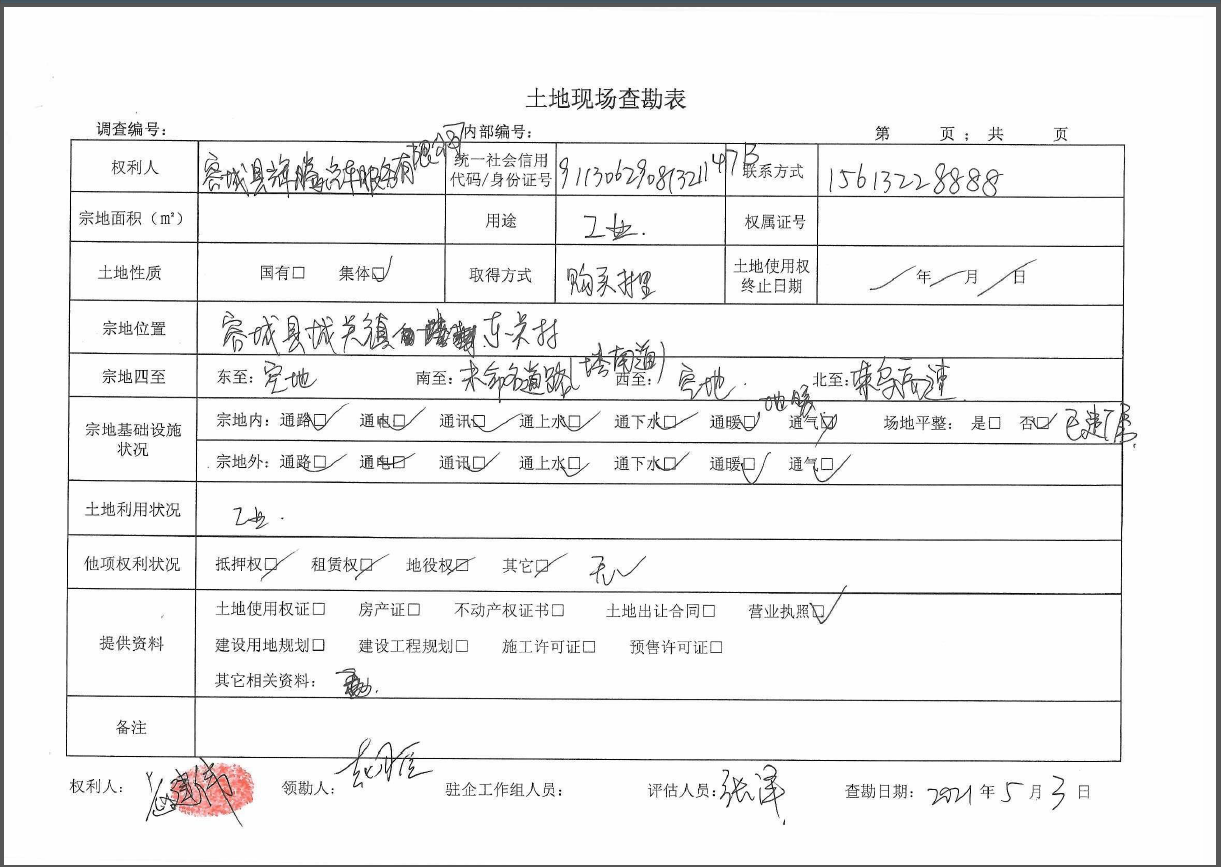 土地现场查勘表
调查编号： 内部编号： 第 页； 共 页
权利人 容城县辉腾汽车服务有限公司 统一社会信用代码/身份证号 91130629081321147B 联系方式 15613228888
宗地面积（㎡） 用途 工业. 权属证号
土地性质 国有□ 集体☑ 取得方式 购买村里 土地使用权终止日期 / 年 / 月 / 日
宗地位置 容城县城关镇 东关村
宗地四至 东至：空地 南至：未命名道路(塔南道) 西至：空地. 北至：荣乌高速
宗地基础设施状况 宗地内：通路☑ 通电☑ 通讯☑ 通上水☑ 通下水☑ 通暖☑ 地暖 通气☑ 场地平整： 是□ 否☑ 已建厂房.
宗地外：通路☑ 通电☑ 通讯☑ 通上水☑ 通下水☑ 通暖☑ 通气☑
土地利用状况 工业.
他项权利状况 抵押权☑ 租赁权☑ 地役权☑ 其它☑ 无✓
提供资料 土地使用权证□ 房产证□ 不动产权证书□ 土地出让合同□ 营业执照☑
建设用地规划□ 建设工程规划□ 施工许可证□ 预售许可证□
其它相关资料：
备注
权利人： 领勘人： 驻企工作组人员： 评估人员：张泽 查勘日期：2021年5月3日